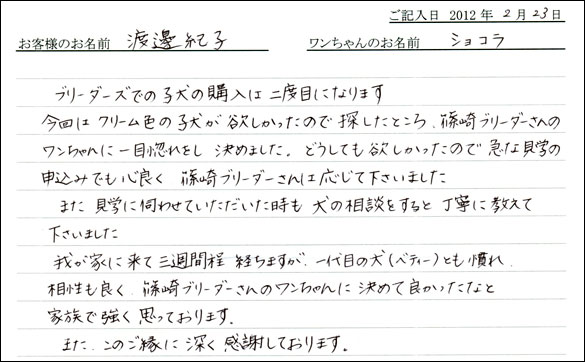 ご記入日 2012 年 2 月 23 日
お客様のお名前 渡邊紀子 ワンちゃんのお名前 ショコラ
ブリーダーズでの子犬の購入は二度目になります
今回は クリーム色の子犬が欲しかったので 探したところ、篠崎ブリーダーさんの
ワンちゃんに一目惚れをし 決めました。どうしても欲しかったので 急な見学の
申込みでも心良く 篠崎ブリーダーさんは応じて下さいました
また 見学に伺わせていただいた時も 犬の相談をすると 丁寧に教えて
下さいました
我が家に来て 三週間程 経ちますが、一代目の犬(ベティー)とも慣れ、
相性も良く、篠崎ブリーダーさんのワンちゃんに 決めて良かったなと
家族で強く思っております。
また、このご縁に深く感謝しております。